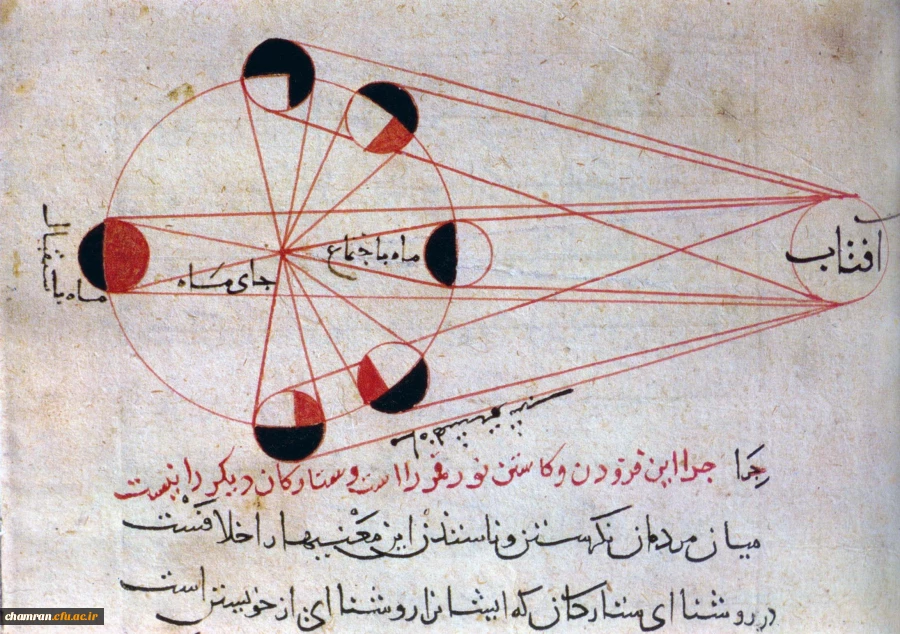 افتاب
ماه باجتماع
جای ماه
ماه باستقبال
چرا چرا این فزودن و کاستن نور قمر را است و ستارکان دیکر را نیست
میان مردمان نکرستن و ناسندن این معنیها را خلافست
در روشنای ستارکان که ایشانرا روشنای از خویشتن است
chamran.cfu.ac.ir